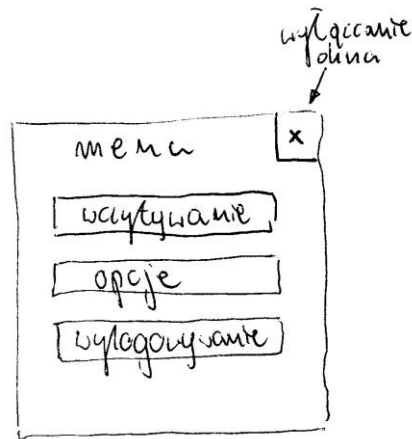 wyłączanie
okna
menu
x
wczytywanie
opcje
wylogowywanie